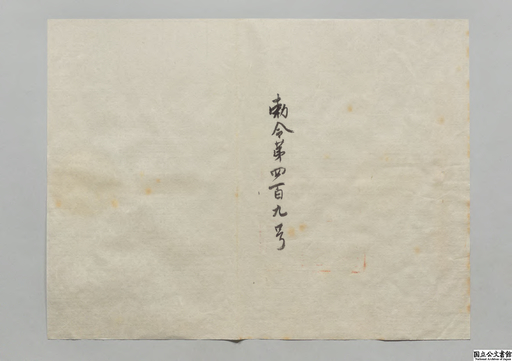 勅令第四百九号
国立公文書館
National Archives of Japan